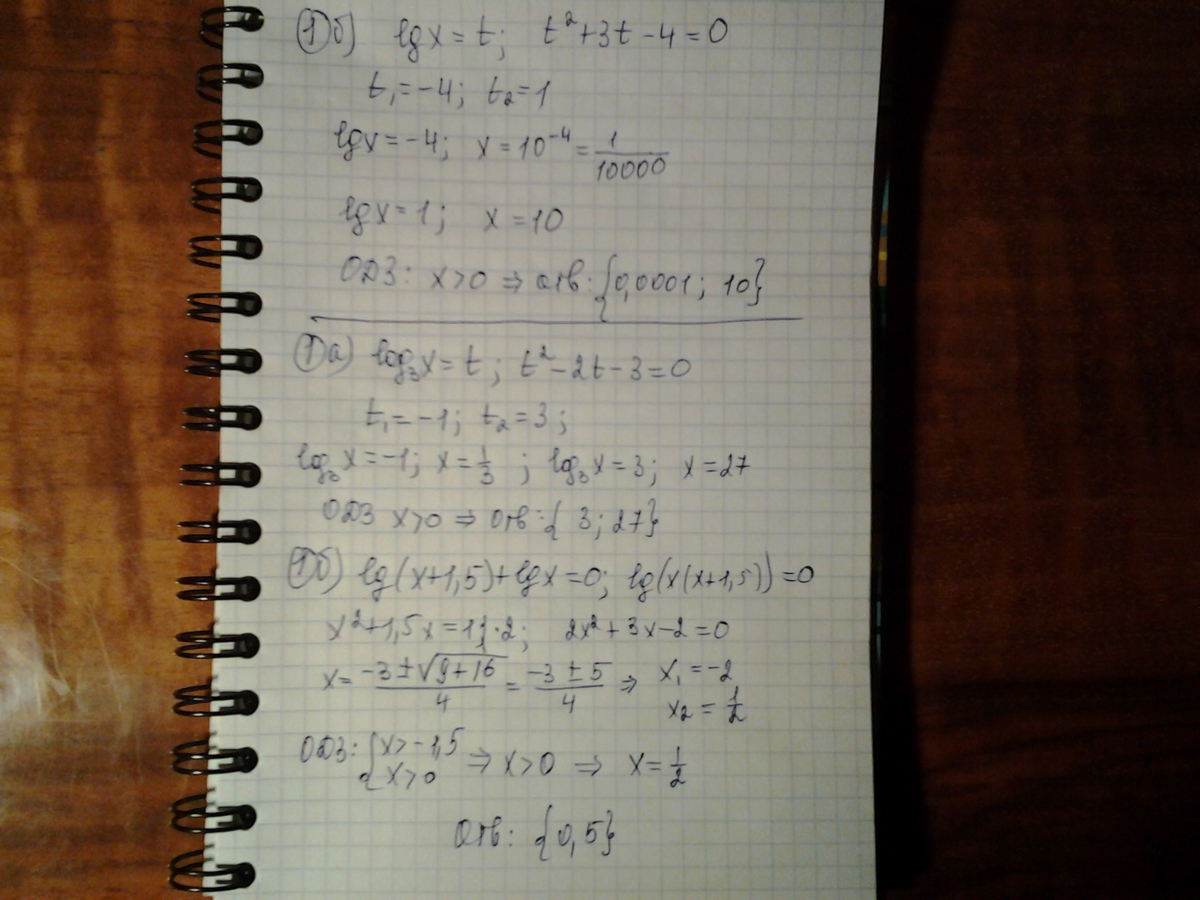 ①б) lgx = t; t²+3t-4=0
t₁=-4; t₂=1
lgx=-4; x=10⁻⁴=1/10000
lgx=1; x=10
ОДЗ: x>0 ⇒ отв: {0,0001; 10}
①а) log₃x=t; t²-2t-3=0
t₁=-1; t₂=3;
log₃x=-1; x=1/3; log₃x=3; x=27
ОДЗ x>0 ⇒ Отв: { 3; 27}
①б) lg(x+1,5)+lgx=0; lg(x(x+1,5))=0
x²+1,5x=1|·2; 2x²+3x-2=0
x=(-3±√(9+16))/4=(-3±5)/4 ⇒ x₁=-2
x₂=1/2
ОДЗ: {x>-1,5
x>0 ⇒ x>0 ⇒ x=1/2
Отв: {0,5}